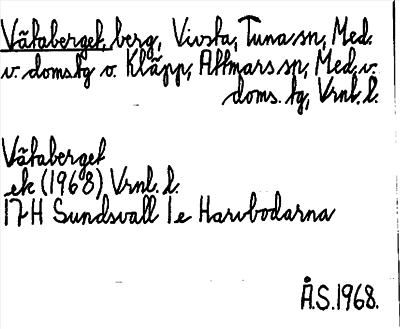 Vätaberget, berg, Vivsta, Tuna sn, Med.
v. doms tg o. Kläpp, Attmars sn, Med. v.
doms. tg, Vrnl. l.
Vätaberget
ek (1968) Vrnl. l.
17H Sundsvall 1e Harvbodarna
Å.S. 1968.